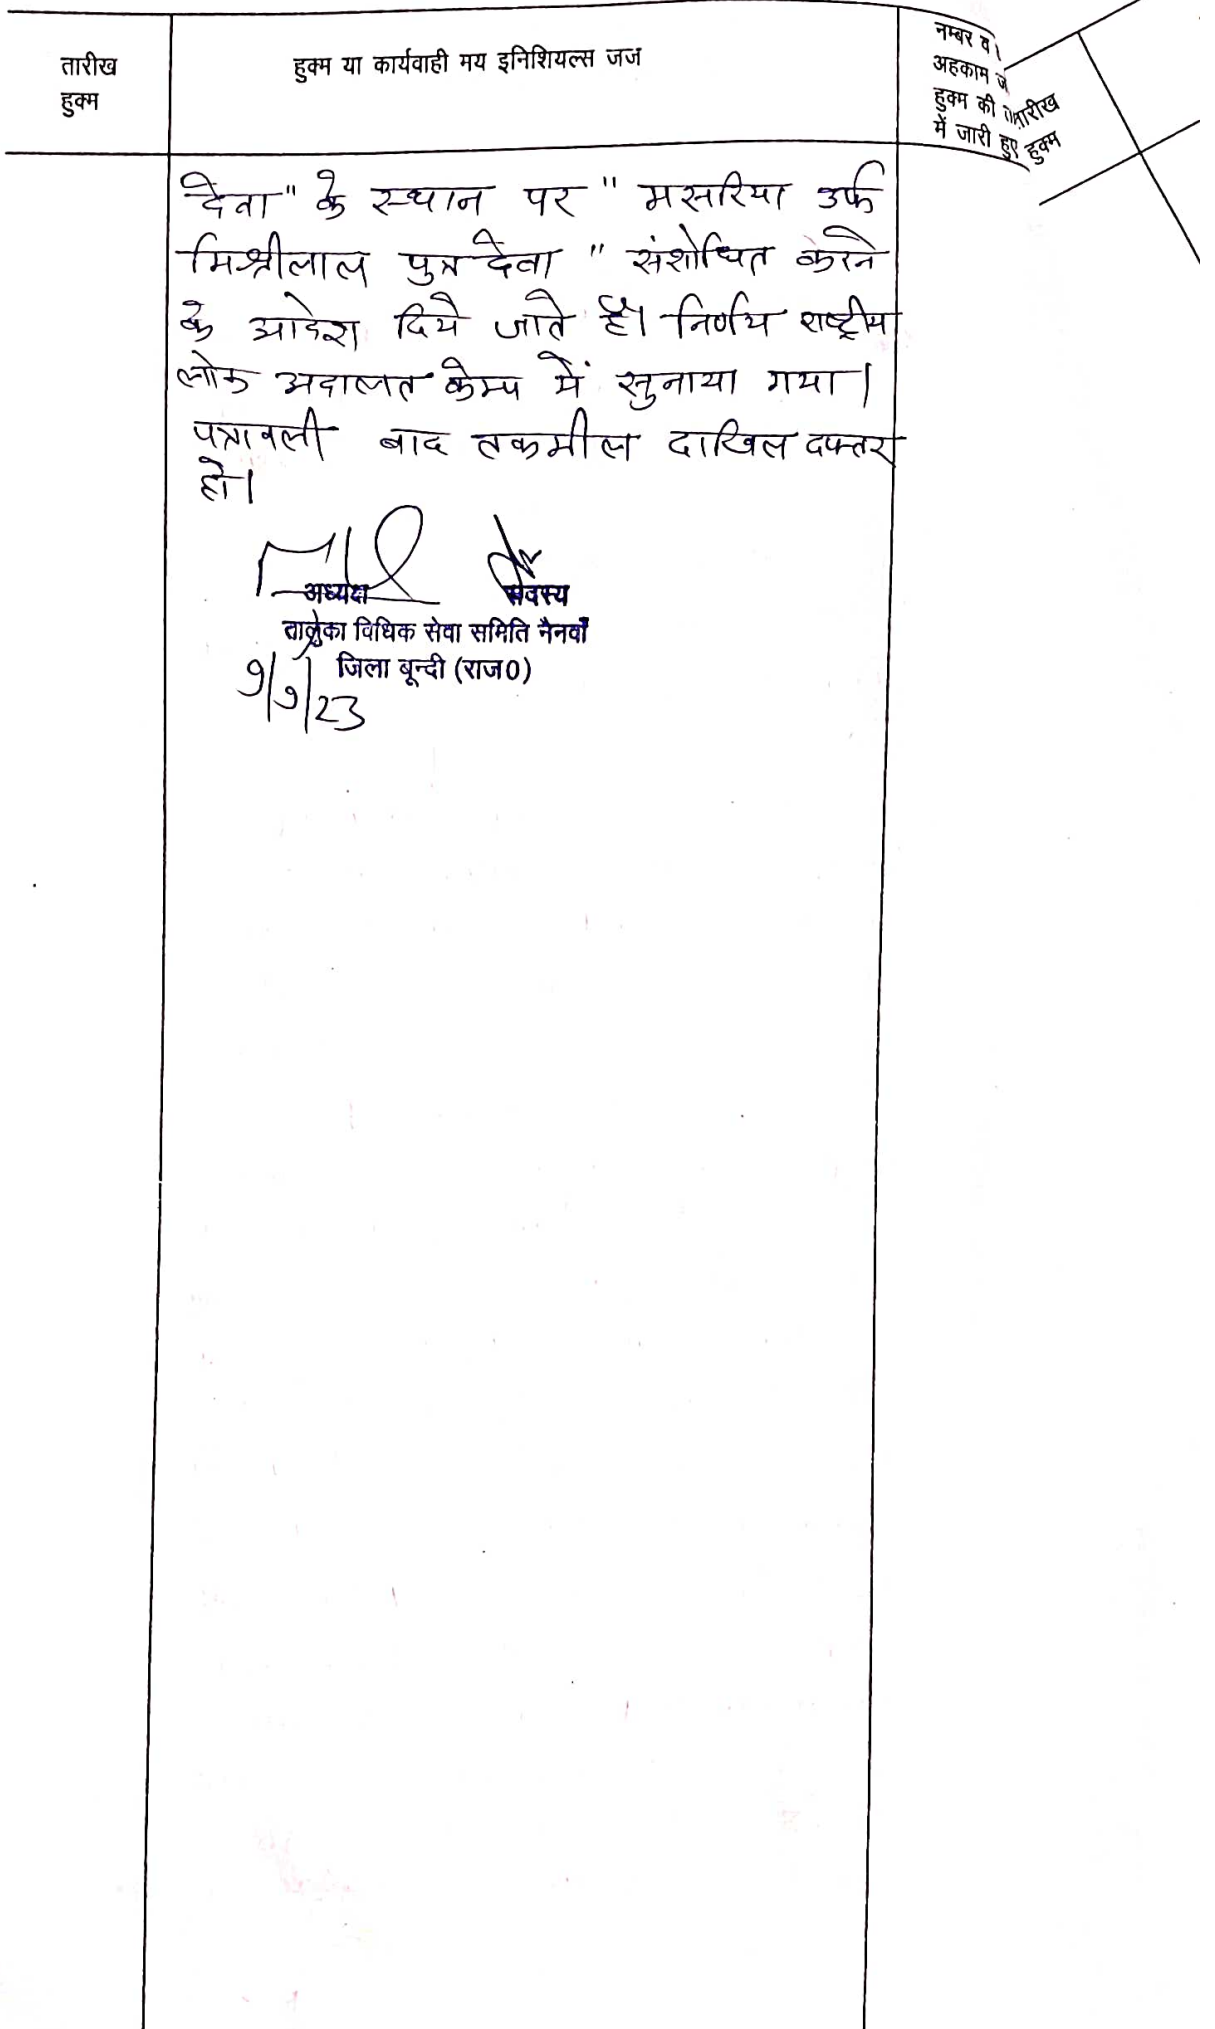 तारीख
हुक्म
हुक्म या कार्यवाही मय इनिशियल्स जज
नम्बर व
अहकाम ज
हुक्म की तारीख
में जारी हुए हुक्म
देवा" के स्थान पर " मसरिया उर्फ
मिश्रीलाल पुत्र देवा " संशोधित करने
के आदेश दिये जाते है। निर्णय राष्ट्रीय
लोक अदालत केम्प में सुनाया गया।
पत्रावली बाद तकमील दाखिल दफ्तर
हो।
अध्यक्ष सदस्य
तालुका विधिक सेवा समिति नैनवाँ
जिला बून्दी (राज0)
9/9/23